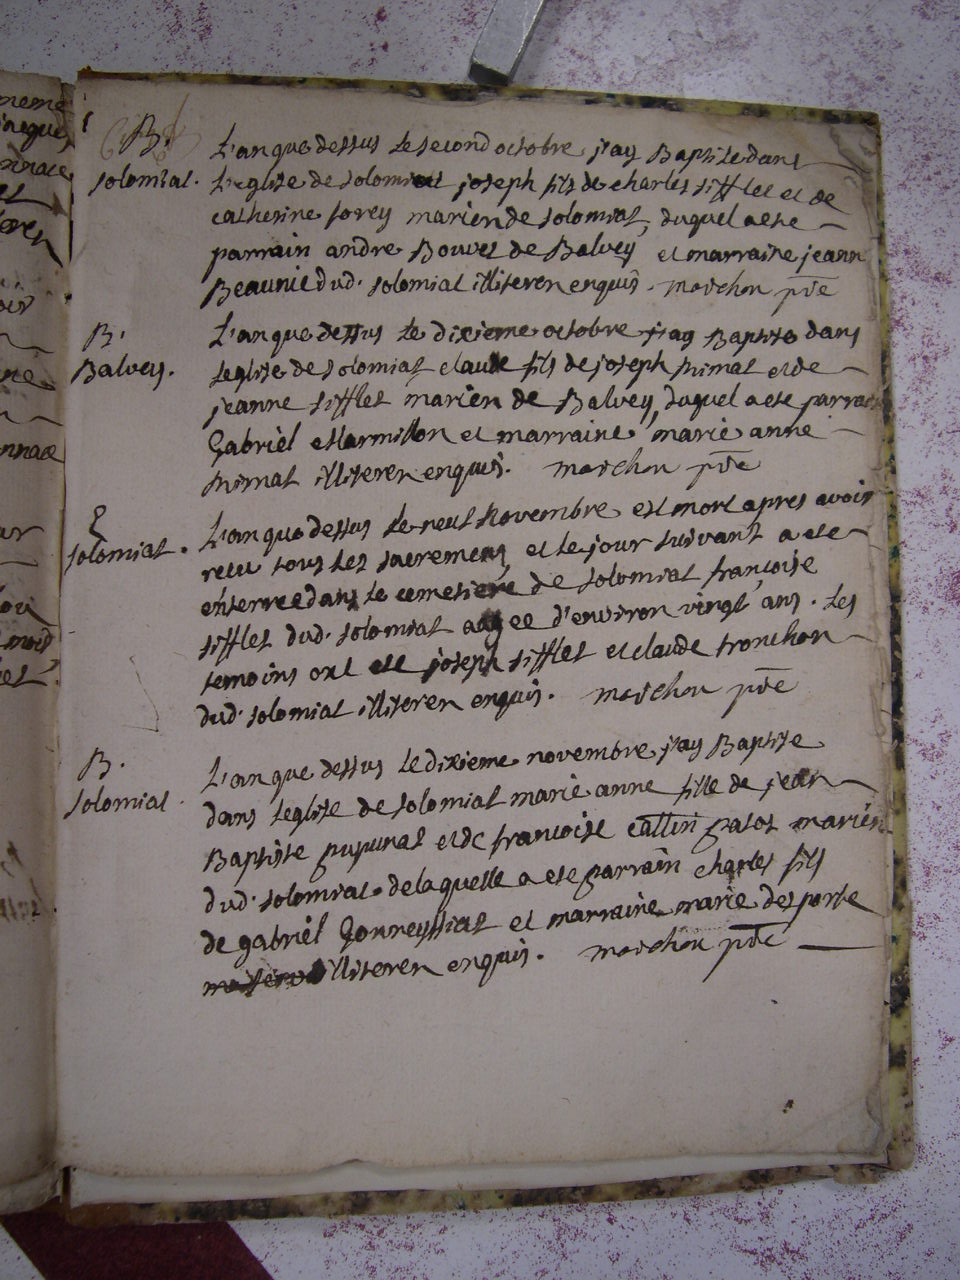 B.
solomiat.
L'an que dessus le second octobre j'ay Baptise dans
l'eglise de solomiat joseph fils de charles sifflet et de
catherine sorey marien de solomiat, duquel a ete
parrain andre Bouvet de Balvey et marraine jeann
Beaunie dud. solomiat illiteren enquis. marchon ptre
B.
Balvey.
L'an que dessus le dixieme octobre j'ay Baptise dans
l'eglise de solomiat claude fils de joseph mimat et de
jeanne sifflet marien de Balvey, duquel a ete parrain
Gabriel et marraine marie anne
mimat illiteren enquis. marchon ptre
S
solomiat.
L'an que dessus le neuf Novembre est mort apres avoir
recu tous les sacremens et le jour suivant a ete
enterree dans le cemetiere de solomiat françoise
sifflet dud. solomiat agee d'environ vingt ans. les
temoins ont ete joseph sifflet et claude tronchon
dud. solomiat illiteren enquis. marchon ptre
B.
solomiat.
L'an que dessus le dixieme novembre j'ay Baptise
dans l'eglise de solomiat marie anne fille de jean
Baptiste pupunat et de francoise cattin patot marién
dud. solomiat de laquelle a ete parrain charles fils
de gabriel Gonneyssiat et marraine marie desporte
illiteren enquis. marchon ptre